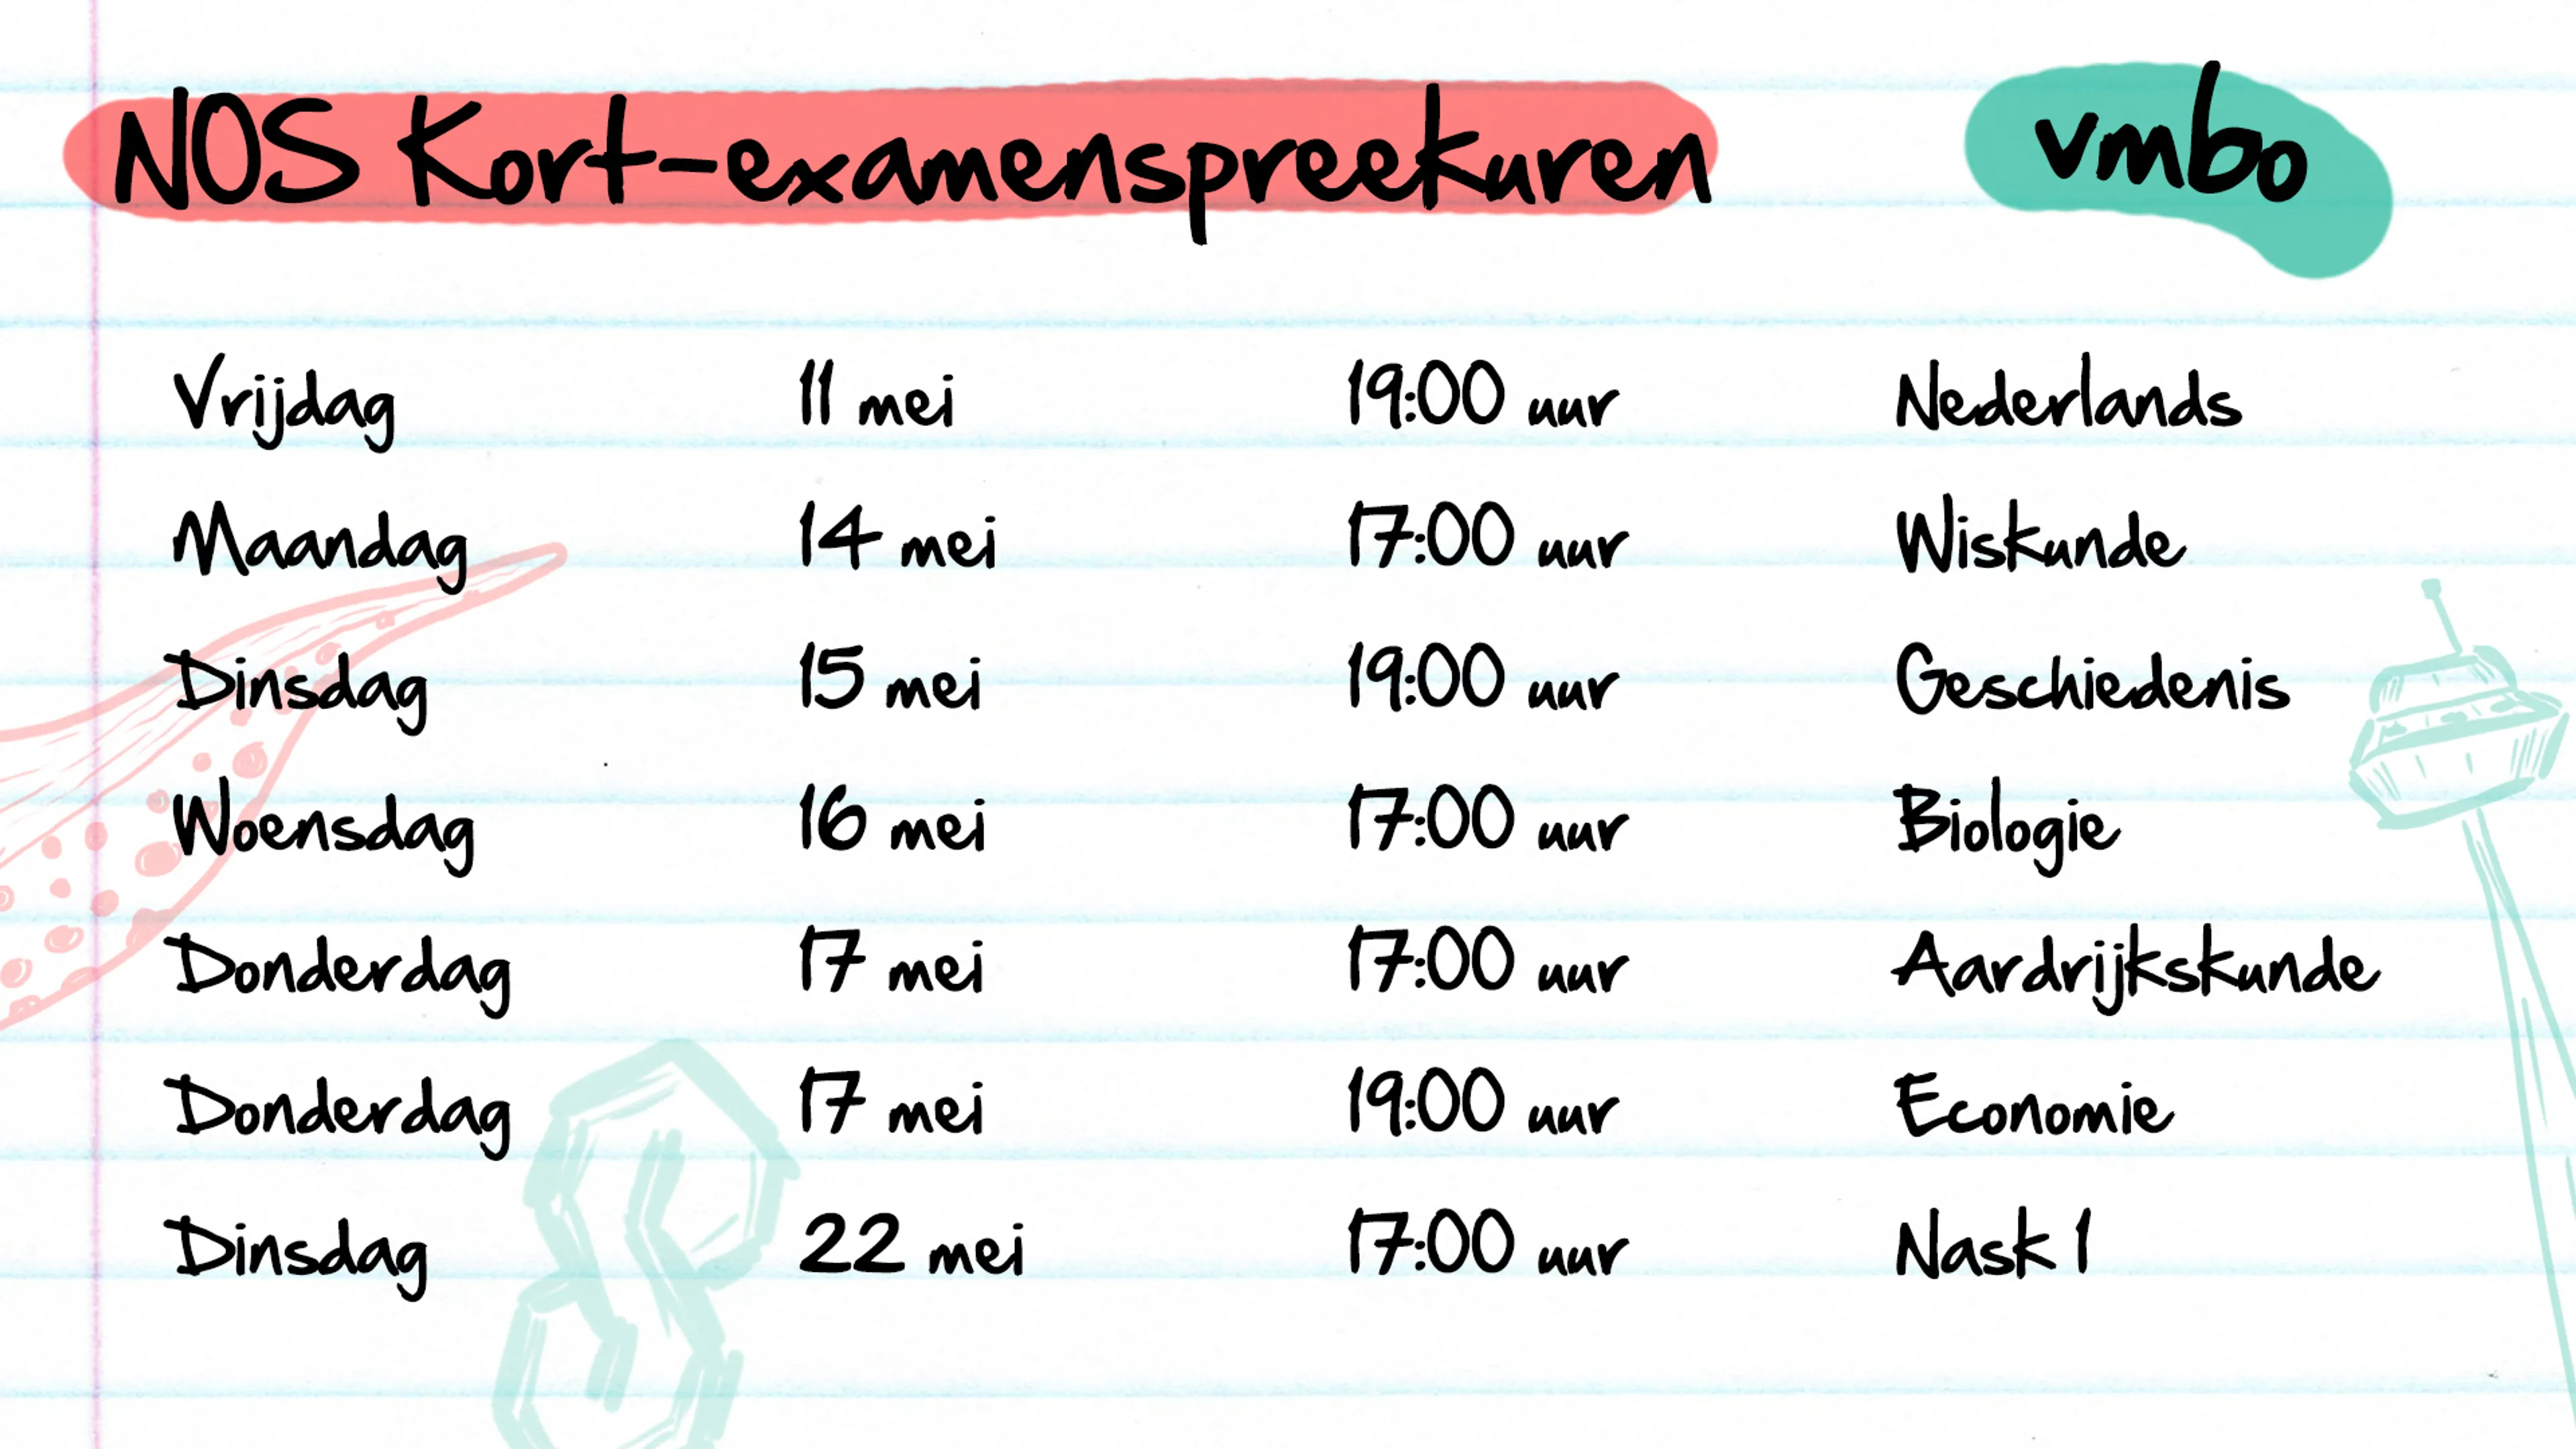 NOS Kort-examenspreekuren vmbo
Vrijdag 11 mei 19:00 uur Nederlands
Maandag 14 mei 17:00 uur Wiskunde
Dinsdag 15 mei 19:00 uur Geschiedenis
Woensdag 16 mei 17:00 uur Biologie
Donderdag 17 mei 17:00 uur Aardrijkskunde
Donderdag 17 mei 19:00 uur Economie
Dinsdag 22 mei 17:00 uur Nask 1